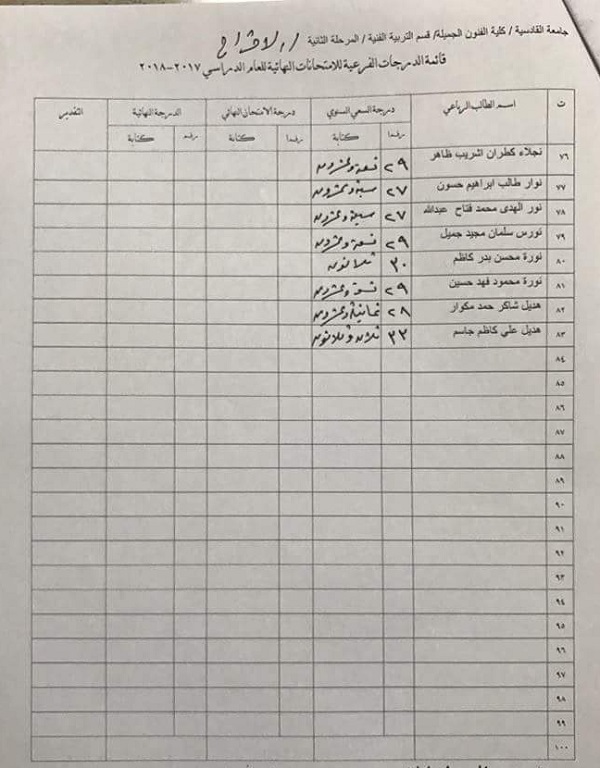 جامعة القادسية / كلية الفنون الجميلة / قسم التربية الفنية / المرحلة الثانية / الاخراج
قائمة الدرجات الفرعية للامتحانات النهائية للعام الدراسي ٢٠١٧-٢٠١٨
ت اسم الطالب الرباعي درجة السعي السنوي درجة الامتحان النهائي الدرجة النهائية التقدير
رقما كتابة رقما كتابة رقما كتابة
٧٦ نجلاء كطران اشريب ظاهر ٢٩ تسعة وعشرون
٧٧ نوار طالب ابراهيم حسون ٢٧ سبعة وعشرون
٧٨ نور الهدى محمد فتاح عبدالله ٢٧ سبعة وعشرون
٧٩ نورس سلمان مجيد جميل ٢٩ تسعة وعشرون
٨٠ نورة محسن بدر كاظم ٣٠ ثلاثون
٨١ نورة محمود فهد حسين ٢٩ تسعة وعشرون
٨٢ هديل شاكر حمد مكوار ٢٨ ثمانية وعشرون
٨٣ هديل علي كاظم جاسم ٣٣ ثلاث وثلاثون
٨٤
٨٥
٨٦
٨٧
٨٨
٨٩
٩٠
٩١
٩٢
٩٣
٩٤
٩٥
٩٦
٩٧
٩٨
٩٩
١٠٠